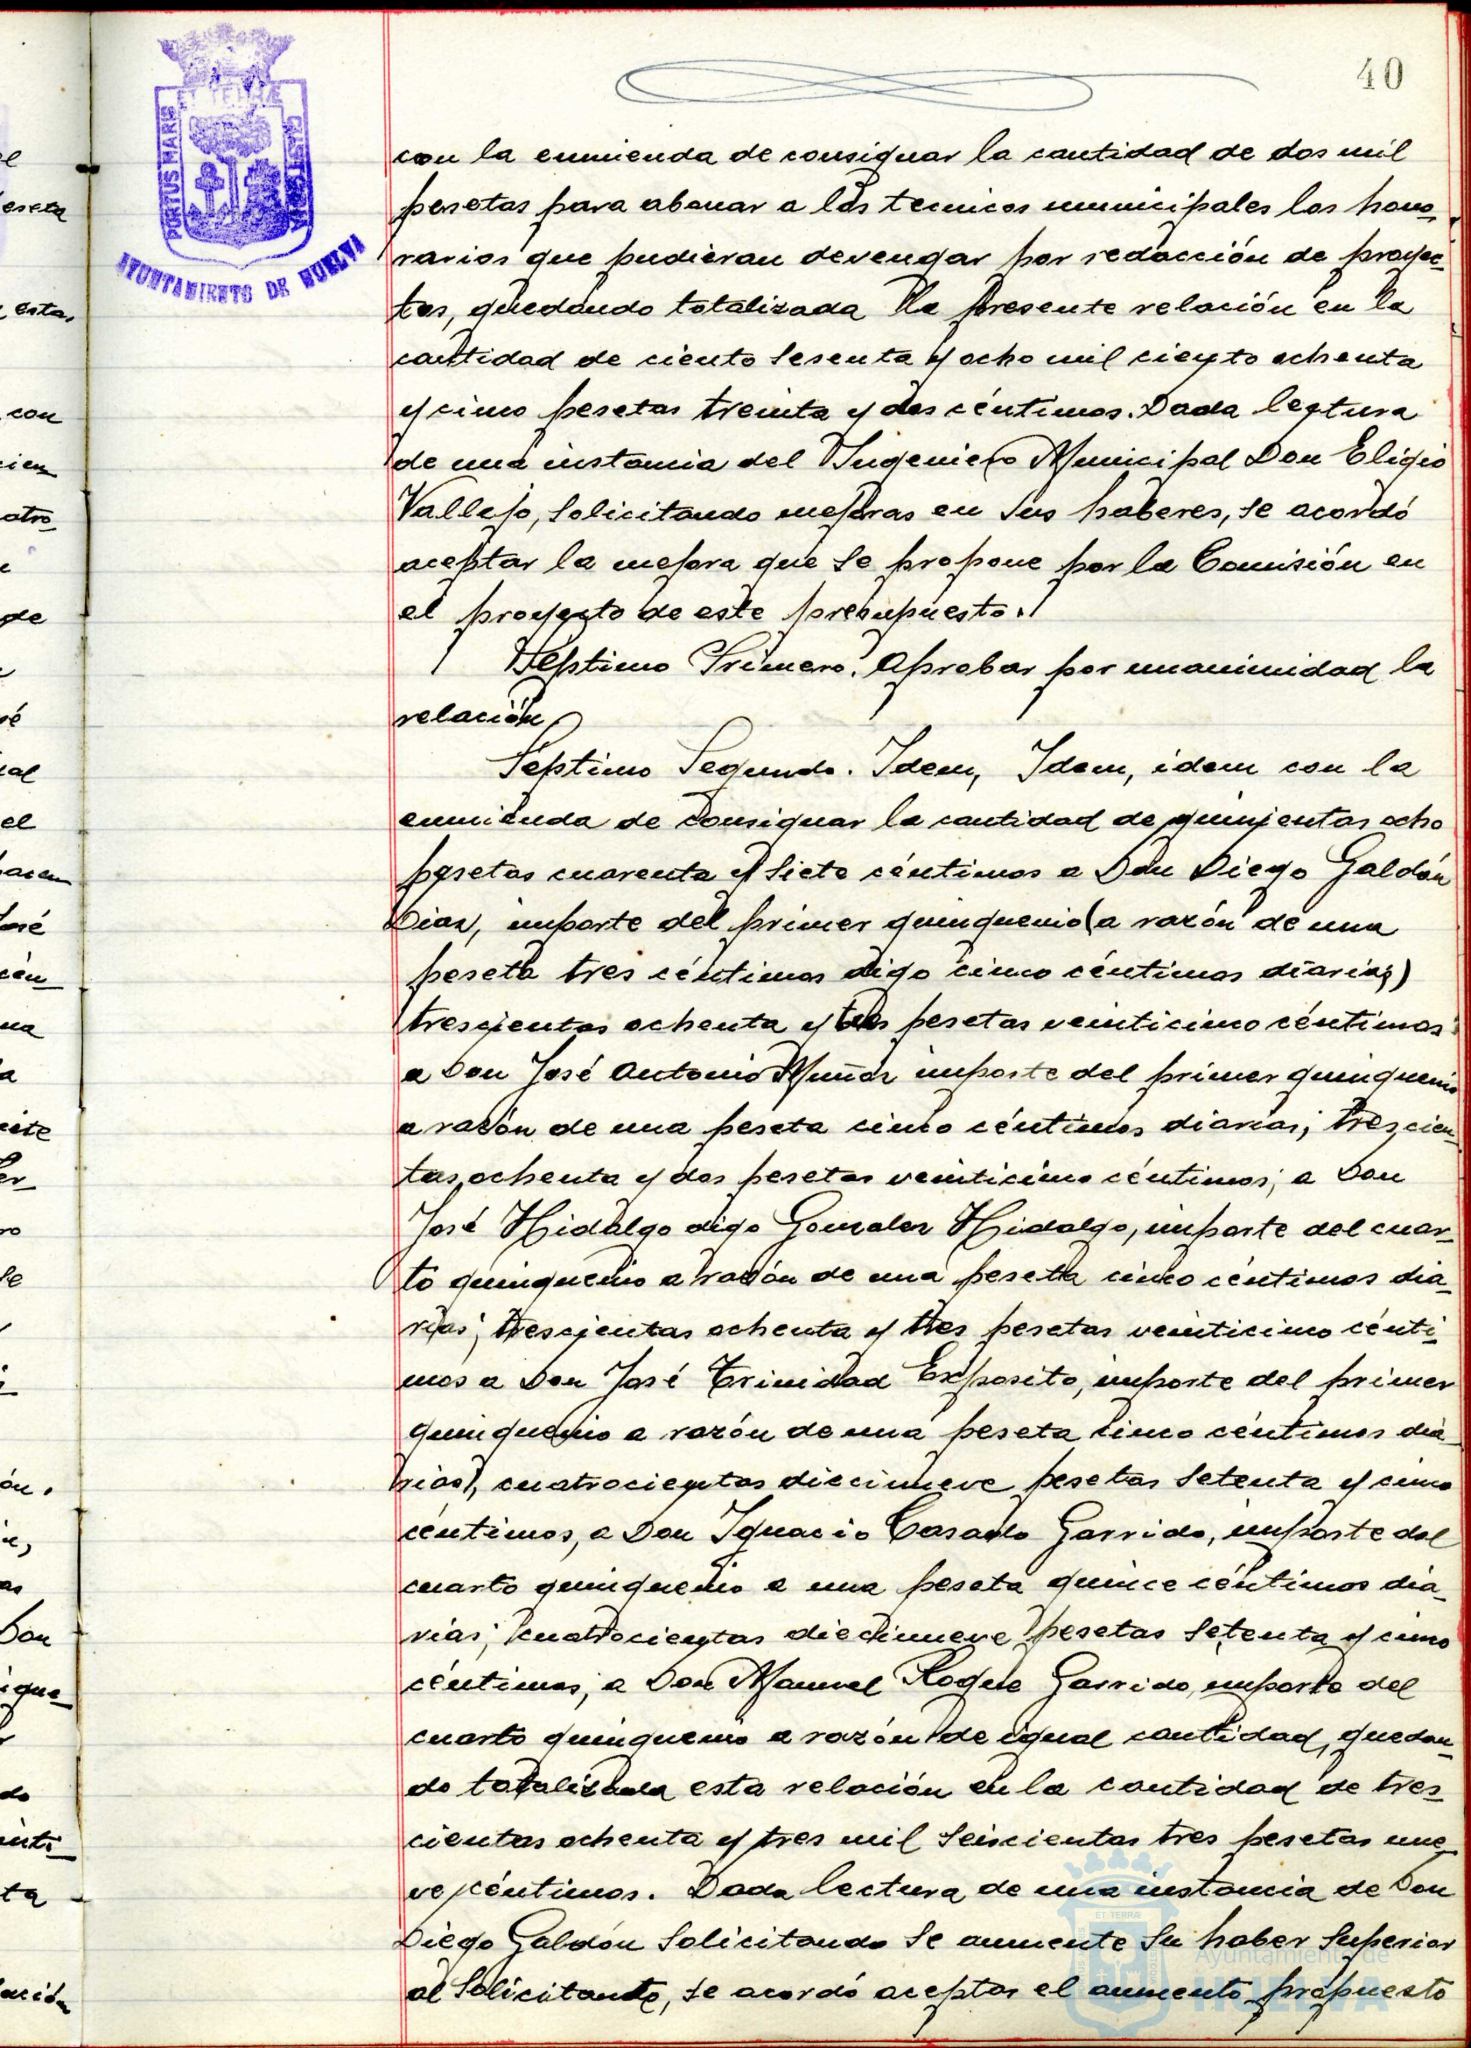 40
ET TERRÆ
PORTUS MARIS
CUSTODIA
AYUNTAMIENTO DE HUELVA
con la enmienda de consignar la cantidad de dos mil
pesetas para abonar a los tecnicos municipales los hono-
rarios que pudieran devengar por redacción de proyec-
tos, quedando totalizada la presente relación en la
cantidad de ciento sesenta y ocho mil ciento ochenta
y cinco pesetas treinta y dos céntimos. Dada lectura
de una instancia del Ingeniero Municipal Don Eligio
Vallejo, solicitando mejoras en sus haberes, se acordó
aceptar la mejora que se propone por la Comisión en
el proyecto de este presupuesto.
Séptimo Primero. Aprobar por unanimidad la
relación
Séptimo Segundo. Idem, Idem, idem con la
enmienda de consignar la cantidad de quinientas ocho
pesetas cuarenta y siete céntimos a Don Diego Galdón
Diaz, importe del primer quinquenio (a razón de una
peseta tres céntimos digo cinco céntimos diarias)
trescientas ochenta y tres pesetas veinticinco céntimos
a Don José Antonio Muñoz importe del primer quinquenio
a razón de una peseta cinco céntimos diarias; trescien-
tas ochenta y dos pesetas veinticinco céntimos; a Don
José Hidalgo digo Gonzalez Hidalgo, importe del cuar-
to quinquenio a razón de una peseta cinco céntimos dia-
rias; trescientas ochenta y tres pesetas veinticinco cénti-
mos a Don José Trinidad Exposito, importe del primer
quinquenio a razón de una peseta cinco céntimos dia-
rias), cuatrocientas diecinueve pesetas setenta y cinco
céntimos, a Don Ignacio Casado Garrido, importe del
cuarto quinquenio a una peseta quince céntimos dia-
rias; cuatrocientas diecinueve pesetas setenta y cinco
céntimos; a Don Manuel Roque Garrido, importe del
cuarto quinquenio a razón de igual cantidad, quedan-
do totalizada esta relación en la cantidad de tres-
cientas ochenta y tres mil seiscientas tres pesetas nue-
ve céntimos. Dada lectura de una instancia de Don
Diego Galdón solicitando se aumente su haber superior
al solicitando, se acordó aceptar el aumento propuesto
Ayuntamiento de
HUELVA